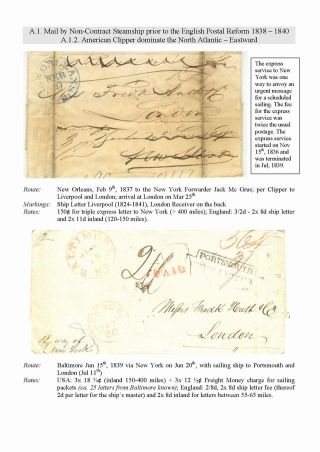 A.1. Mail by Non-Contract Steamship prior to the English Postal Reform 1838 – 1840
A.1.2. American Clipper dominate the North Atlantic – Eastward
The express
service to New
York was one
way to envoy an
urgent message
for a scheduled
sailing. The fee
for the express
service was
twice the usual
postage. The
express service
started on Nov
15th, 1836 and
was terminated
in Jul, 1839.
Route: New Orleans, Feb 9th, 1837 to the New York Forwarder Jack Mc Gray, per Clipper to
Liverpool and London; arrival at London on Mar 25th
Markings: Ship Letter Liverpool (1824-1841), London Receiver on the back
Rates: 150¢ for triple express letter to New York (> 400 miles); England: 3/2d - 2x 8d ship letter
and 2x 11d inland (120-150 miles).
PAID
PORTSMOUTH
Messrs Fredk Huth & Co
London
By way of
New York
Route: Baltimore Jun 15th, 1839 via New York on Jun 20th, with sailing ship to Portsmouth and
London (Jul 11th)
Rates: USA: 3x 18 ¾¢ (inland 150-400 miles) + 3x 12 ½¢ Freight Money charge for sailing
packets (ca. 25 letters from Baltimore known); England: 2/8d, 2x 8d ship letter fee (thereof
2d per letter for the ship's master) and 2x 8d inland for letters between 55-65 miles.